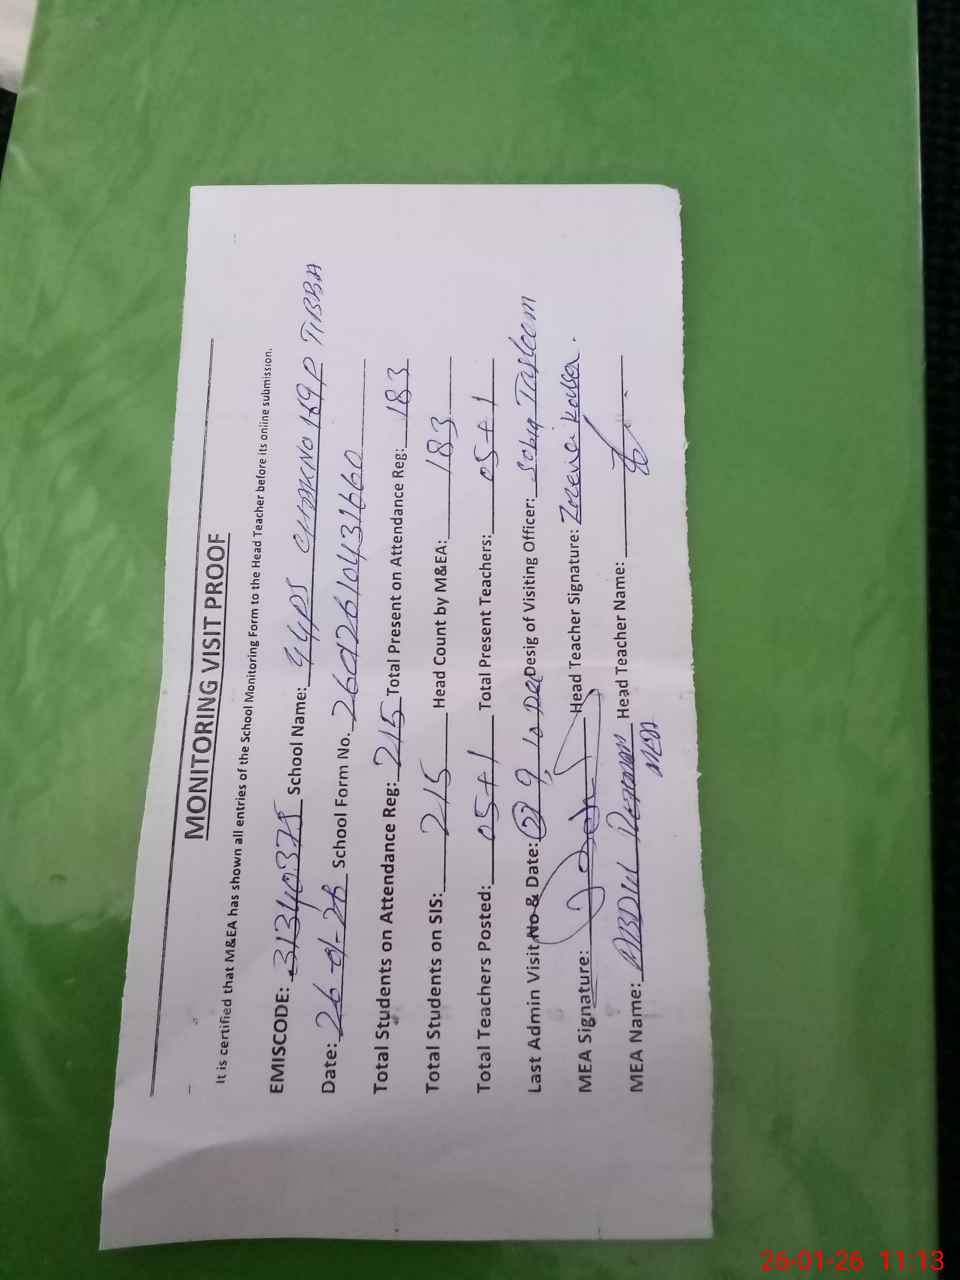 MONITORING VISIT PROOF
It is certified that M&EA has shown all entries of the School Monitoring Form to the Head Teacher before its online submission.
EMISCODE: 31340375 School Name: GGPS CHAK NO 169P TIBBA
Date: 26-01-26 School Form No. 26012610431660
Total Students on Attendance Reg: 215 Total Present on Attendance Reg: 183
Total Students on SIS: 215 Head Count by M&EA: 183
Total Teachers Posted: 05+1 Total Present Teachers: 05+1
Last Admin Visit No & Date: 9 Desig of Visiting Officer: Sobia Tasleem
MEA Signature: Head Teacher Signature:
MEA Name: ABDUL REHMAN Head Teacher Name:
MEA
26-01-26 11:13